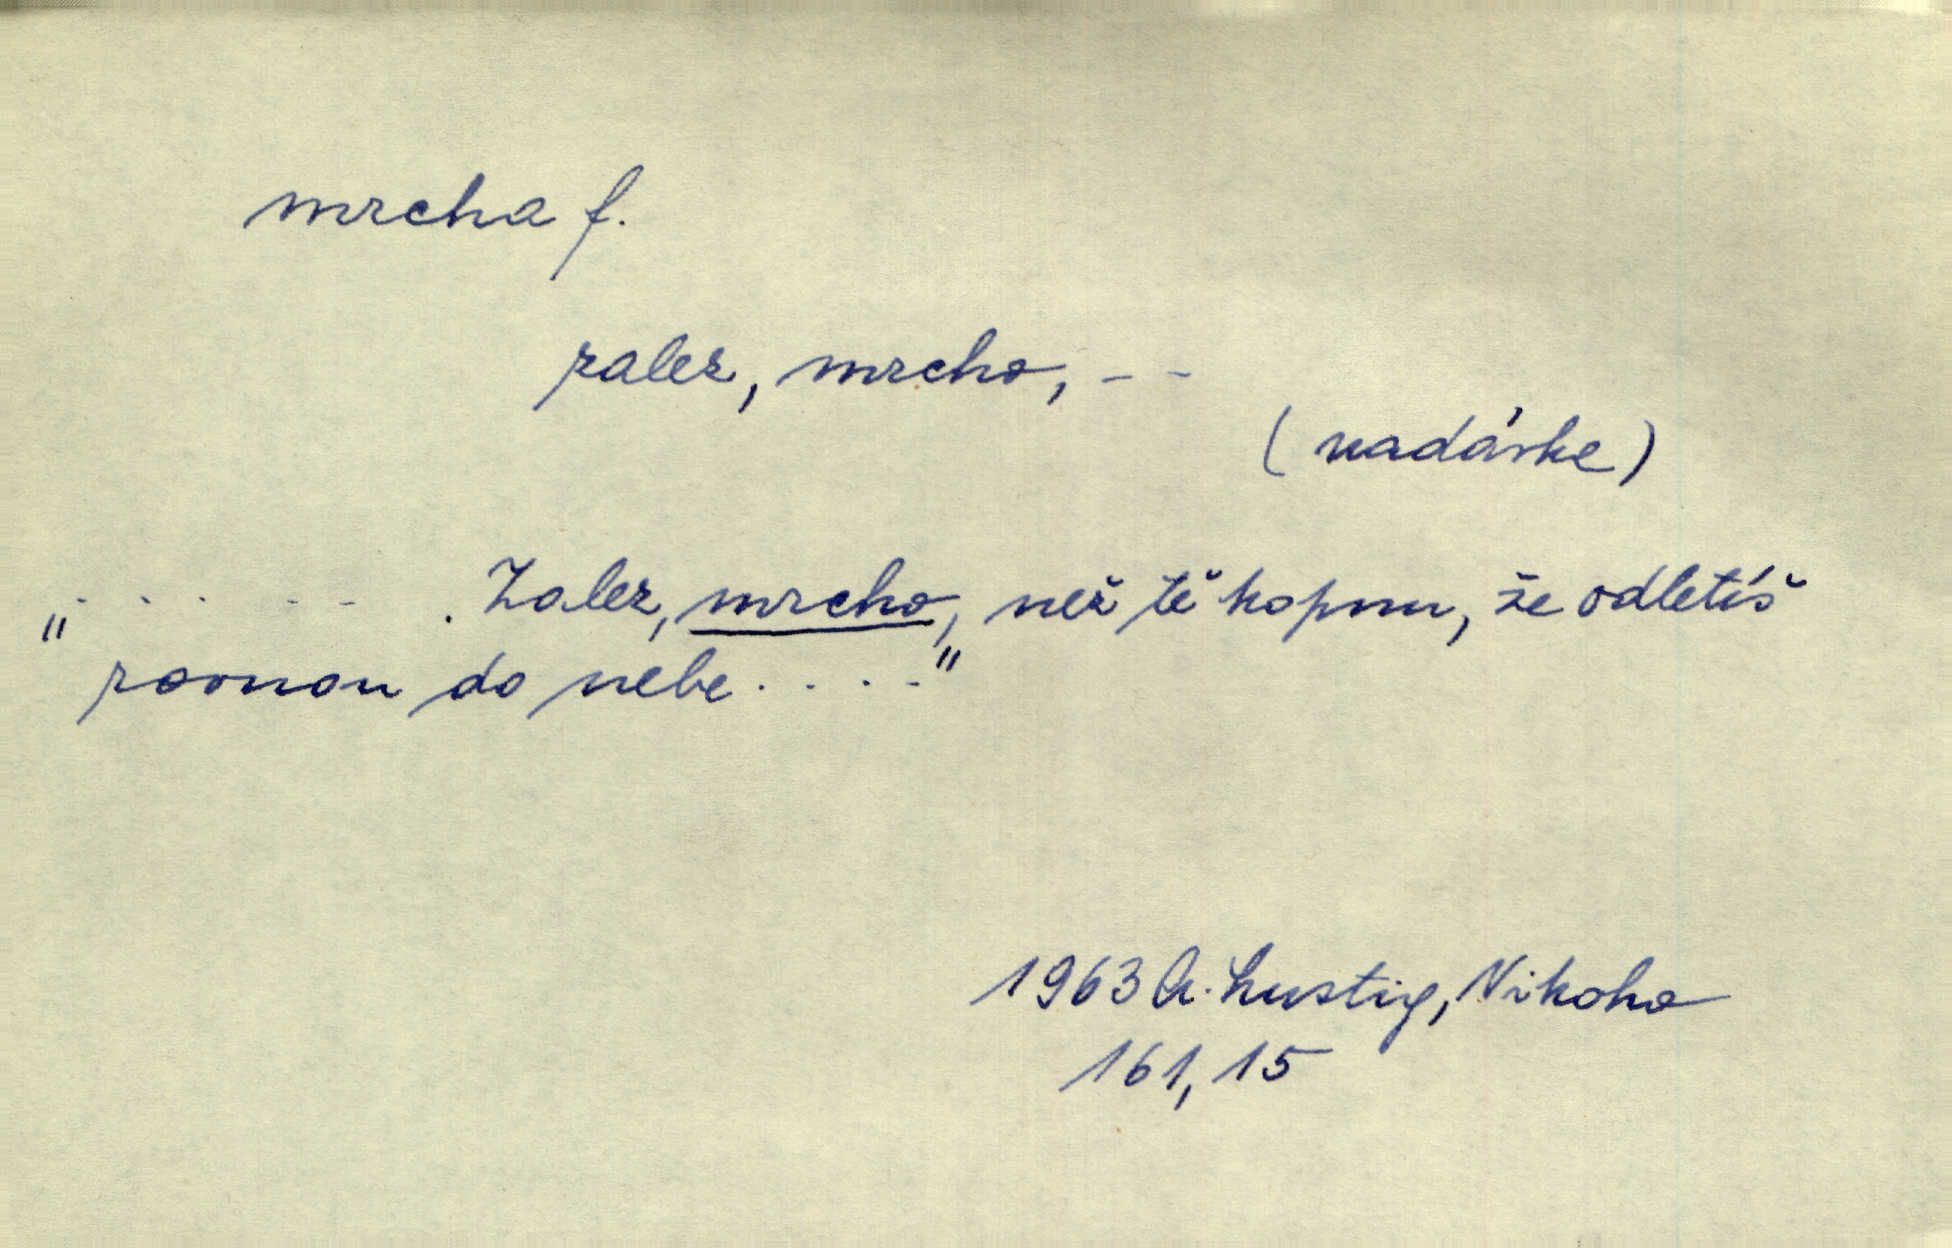 mrcha f.
zalez, mrcho, – –
(nadávke)
„. . . . . . . Zalez, mrcho, než tě kopnu, že odletíš
rovnou do nebe . . . ."
1963 A. Lustig, Nikoho
161, 15